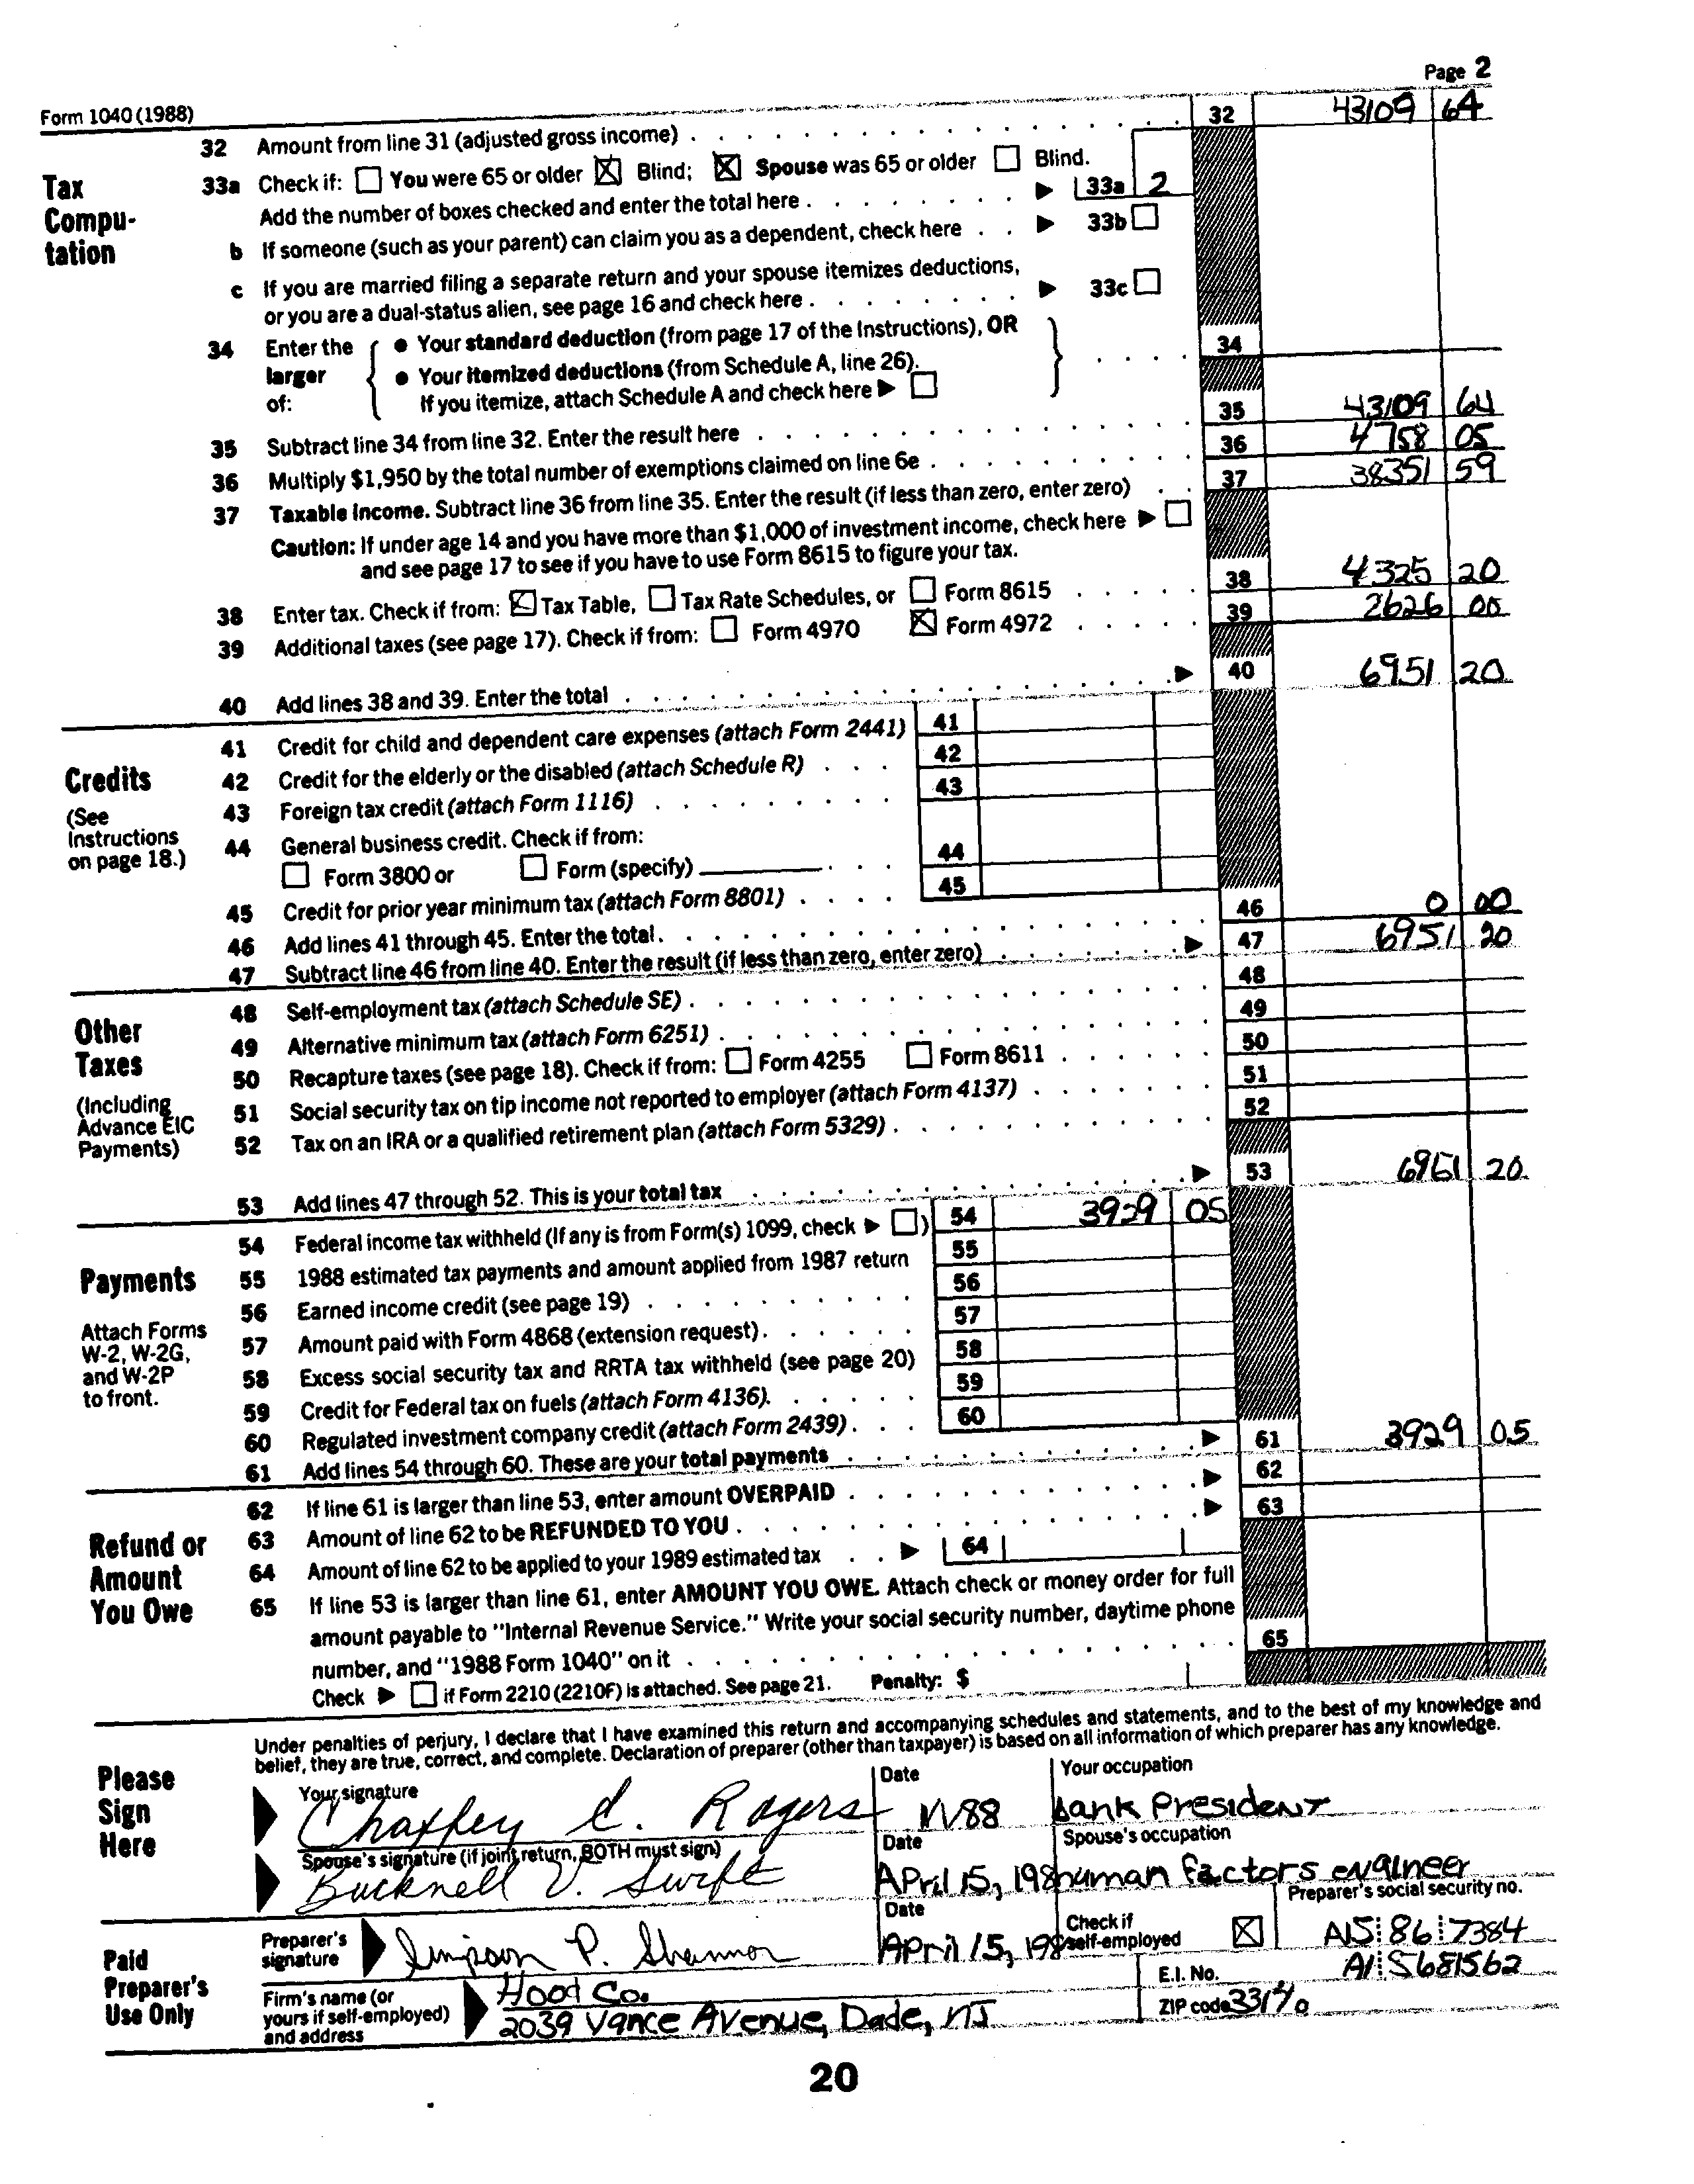 Page 2
Form 1040 (1988)
32 Amount from line 31 (adjusted gross income) 32 43109 64
Tax Compu- tation
33a Check if: You were 65 or older Blind; Spouse was 65 or older Blind.
Add the number of boxes checked and enter the total here 33a 2
b If someone (such as your parent) can claim you as a dependent, check here 33b
c If you are married filing a separate return and your spouse itemizes deductions,
or you are a dual-status alien, see page 16 and check here 33c
34 Enter the larger of:
• Your standard deduction (from page 17 of the Instructions), OR
• Your itemized deductions (from Schedule A, line 26).
If you itemize, attach Schedule A and check here
34
35 Subtract line 34 from line 32. Enter the result here 35 43109 64
36 Multiply $1,950 by the total number of exemptions claimed on line 6e 36 4758 05
37 Taxable Income. Subtract line 36 from line 35. Enter the result (if less than zero, enter zero) 37 38351 59
Caution: If under age 14 and you have more than $1,000 of investment income, check here
and see page 17 to see if you have to use Form 8615 to figure your tax.
38 Enter tax. Check if from: Tax Table, Tax Rate Schedules, or Form 8615 38 4325 20
39 Additional taxes (see page 17). Check if from: Form 4970 Form 4972 39 2626 00
40 Add lines 38 and 39. Enter the total 40 6951 20
Credits
(See Instructions on page 18.)
41 Credit for child and dependent care expenses (attach Form 2441) 41
42 Credit for the elderly or the disabled (attach Schedule R) 42
43 Foreign tax credit (attach Form 1116) 43
44 General business credit. Check if from:
Form 3800 or Form (specify) 44
45 Credit for prior year minimum tax (attach Form 8801) 45
46 Add lines 41 through 45. Enter the total 46 0 00
47 Subtract line 46 from line 40. Enter the result (if less than zero, enter zero) 47 6951 20
Other Taxes
(Including Advance EIC Payments)
48 Self-employment tax (attach Schedule SE) 48
49 Alternative minimum tax (attach Form 6251) 49
50 Recapture taxes (see page 18). Check if from: Form 4255 Form 8611 50
51 Social security tax on tip income not reported to employer (attach Form 4137) 51
52 Tax on an IRA or a qualified retirement plan (attach Form 5329) 52
53 Add lines 47 through 52. This is your total tax 53 6951 20
Payments
Attach Forms W-2, W-2G, and W-2P to front.
54 Federal income tax withheld (If any is from Form(s) 1099, check ) 54 3929 05
55 1988 estimated tax payments and amount applied from 1987 return 55
56 Earned income credit (see page 19) 56
57 Amount paid with Form 4868 (extension request) 57
58 Excess social security tax and RRTA tax withheld (see page 20) 58
59 Credit for Federal tax on fuels (attach Form 4136) 59
60 Regulated investment company credit (attach Form 2439) 60
61 Add lines 54 through 60. These are your total payments 61 3929 05
Refund or Amount You Owe
62 If line 61 is larger than line 53, enter amount OVERPAID 62
63 Amount of line 62 to be REFUNDED TO YOU 63
64 Amount of line 62 to be applied to your 1989 estimated tax 64
65 If line 53 is larger than line 61, enter AMOUNT YOU OWE. Attach check or money order for full
amount payable to "Internal Revenue Service." Write your social security number, daytime phone
number, and "1988 Form 1040" on it 65
Check if Form 2210 (2210F) is attached. See page 21. Penalty: $
Under penalties of perjury, I declare that I have examined this return and accompanying schedules and statements, and to the best of my knowledge and
belief, they are true, correct, and complete. Declaration of preparer (other than taxpayer) is based on all information of which preparer has any knowledge.
Please Sign Here
Your signature Date Your occupation
Chaffey C. Rogers 11/88 bank President
Spouse's signature (if joint return, BOTH must sign) Date Spouse's occupation
Bucknell V. Swift April 15, 198 human factors engineer
Paid Preparer's Use Only
Preparer's signature Date Check if self-employed Preparer's social security no.
Simpson P. Shannon April 15, 198 A15 86 7384
Firm's name (or yours if self-employed) and address
Hood Co. E.I. No. A1 5681562
2039 Vance Avenue, Dade, NJ ZIP code 33170
20